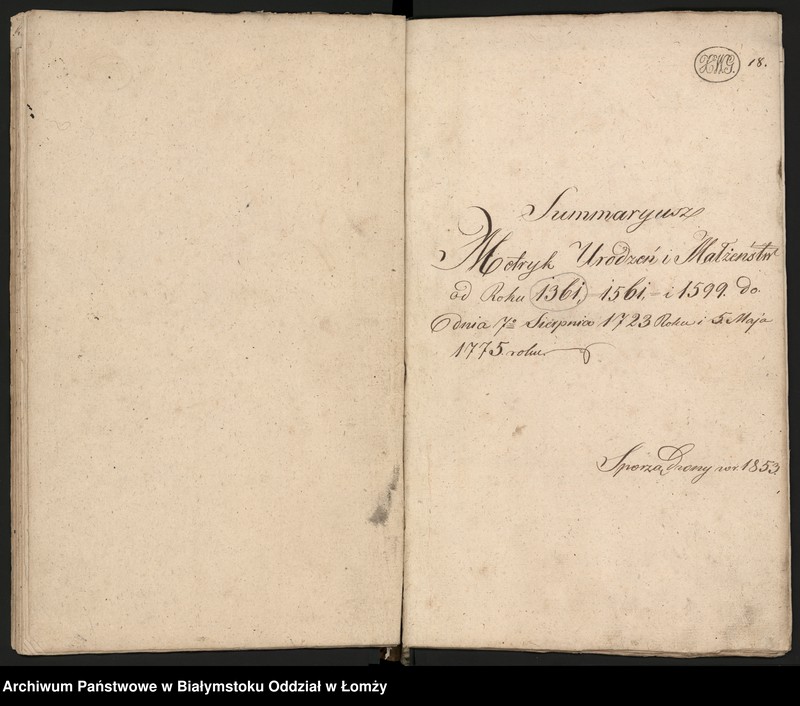 XWG. 18.
Summaryusz
Metryk Urodzeń i Małżeństw
od Roku 1361, – 1561, – i 1599. do
dnia 7º Sierpnia 1723 Roku i 5. Maja
1775. roku.
Sporządzony w r. 1853.
Archiwum Państwowe w Białymstoku Oddział w Łomży